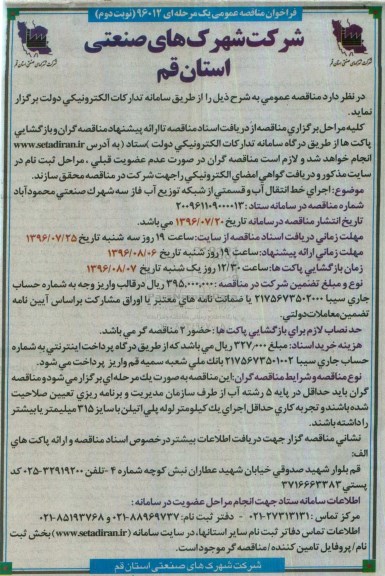 فراخوان مناقصه عمومی یک مرحله ای ۹۶۰۱۲ (نوبت دوم)
شرکت شهرک های صنعتی
استان قم
شرکت شهرکهای صنعتی استان قم
در نظر دارد مناقصه عمومی به شرح ذیل را از طریق سامانه تدارکات الکترونیکی دولت برگزار
نماید.
کلیه مراحل برگزاری مناقصه از دریافت اسناد مناقصه تا ارائه پیشنهاد مناقصه گران و بازگشایی
پاکت ها از طریق درگاه سامانه تدارکات الکترونیکی دولت (ستاد) به آدرس www.setadiran.ir
انجام خواهد شد و لازم است مناقصه گران در صورت عدم عضویت قبلی، مراحل ثبت نام در
سایت مذکور و دریافت گواهی امضای الکترونیکی را جهت شرکت در مناقصه محقق سازند.
موضوع: اجرای خط انتقال آب و قسمتی از شبکه توزیع آب فاز سه شهرک صنعتی محمودآباد
شماره مناقصه در سامانه ستاد : ۲۰۰۹۶۱۱۰۹۰۰۰۰۱۳
تاریخ انتشار مناقصه در سامانه تاریخ ۱۳۹۶/۰۷/۲۰ می باشد.
مهلت زمانی دریافت اسناد مناقصه از سایت: ساعت ۱۹ روز سه شنبه تاریخ ۱۳۹۶/۰۷/۲۵
مهلت زمانی ارائه پیشنهاد: ساعت ۱۹ روز شنبه تاریخ ۱۳۹۶/۰۸/۰۶
زمان بازگشایی پاکت ها: ساعت ۱۲/۳۰ روز یک شنبه تاریخ ۱۳۹۶/۰۸/۰۷
نوع و مبلغ تضمین شرکت در مناقصه : ۳۹۵.۰۰۰.۰۰۰ ریال در قالب واریز وجه به شماره حساب
جاری سیبا ۲۱۷۵۶۷۳۵۰۲۰۰۰ یا ضمانت نامه های معتبر یا اوراق مشارکت بر اساس آیین نامه
تضمین معاملات دولتی.
حد نصاب لازم برای بازگشایی پاکت ها : حضور ۲ مناقصه گر می باشد.
هزینه خرید اسناد: مبلغ ۳۲۷,۰۰۰ ریال می باشد که از طریق درگاه پرداخت اینترنتی به شماره
حساب جاری سیبا ۲۱۷۵۶۷۳۵۰۱۰۰۲ بانک ملی شعبه سمیه قم واریز پرداخت می شود.
نوع مناقصه و شرایط مناقصه گران: این مناقصه به صورت یک مرحله ای برگزار می شود و مناقصه
گران باید حداقل در پایه ۵ رشته آب از طرف سازمان مدیریت و برنامه ریزی تعیین صلاحیت
شده باشند و تجربه کاری حداقل اجرای یک کیلومتر لوله پلی اتیلن با سایز ۳۱۵ میلیمتر یا بیشتر
را داشته باشند.
نشانی مناقصه گزار جهت دریافت اطلاعات بیشتر در خصوص اسناد مناقصه و ارائه پاکت های
الف:
قم بلوار شهید صدوقی خیابان شهید عطاران نبش کوچه شماره ۴ - تلفن ۳۲۹۱۹۲۰۰-۰۲۵ کد
پستی ۳۷۱۶۶۶۳۳۸۳
اطلاعات سامانه ستاد جهت انجام مراحل عضویت در سامانه :
مرکز تماس : ۲۷۳۱۳۱۳۱-۰۲۱ - دفتر ثبت نام: ۸۸۹۶۹۷۳۷-۰۲۱ و ۸۵۱۹۳۷۶۸-۰۲۱
اطلاعات تماس دفاتر ثبت نام سایر استانها، در سایت سامانه (www.setadiran.ir) بخش ثبت
نام / پروفایل تامین کننده / مناقصه گر موجود است.
شرکت شهرک های صنعتی استان قم